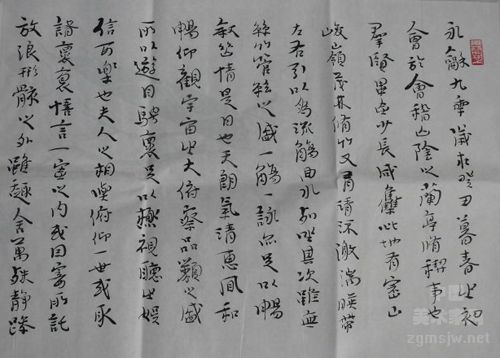 永龢九年歲在癸丑暮春之初
會於會稽山陰之蘭亭脩稧事也
羣賢畢至少長咸集此地有崇山
峻嶺茂林脩竹又有清流激湍暎帶
左右引以為流觴曲水列坐其次雖無
絲竹管絃之盛觴詠亦足以暢
敘幽情是日也天朗氣清惠風和
暢仰觀宇宙之大俯察品類之盛
所以遊目騁懷足以極視聽之娛
信可樂也夫人之相與俯仰一世或取
諸懷悟言一室之內或因寄所託
放浪形骸之外雖趣舍萬殊靜躁
zgmsjw.net